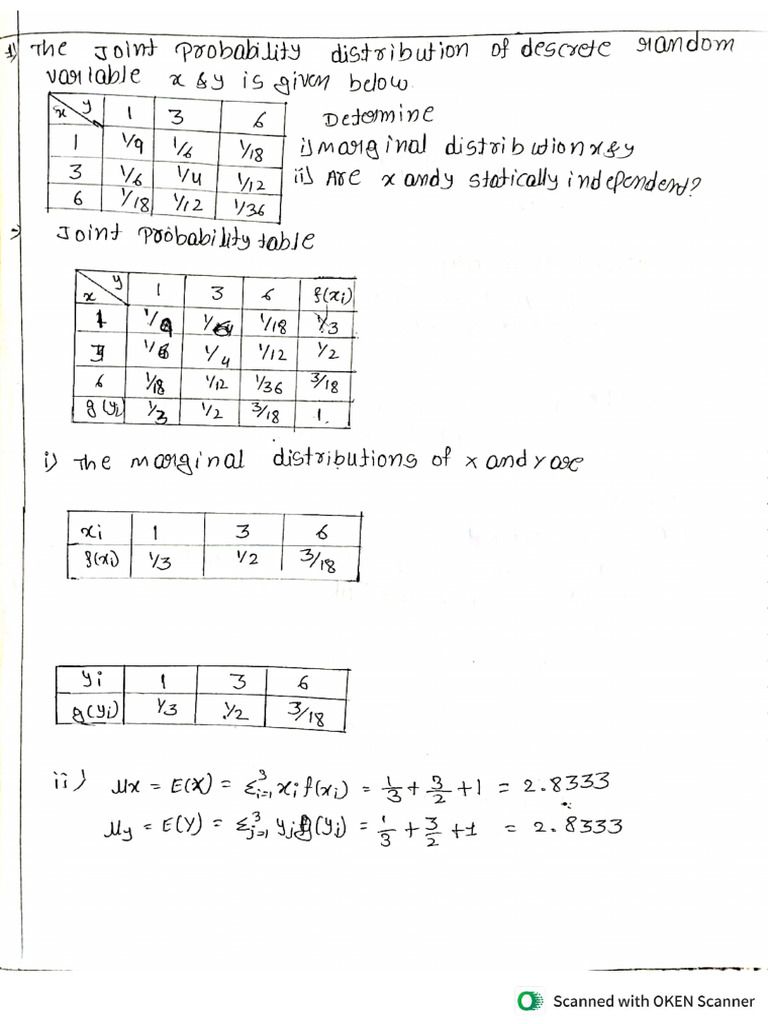 1) The Joint Probability distribution of descrete random
variable x & y is given below.
x y 1 3 6 Determine
1 1/9 1/6 1/18 i) marginal distribution x & y
3 1/6 1/4 1/12 ii) Are x and y statically independent?
6 1/18 1/12 1/36
=> Joint Probability table
x y 1 3 6 f(xi)
1 1/9 1/6 1/18 1/3
3 1/6 1/4 1/12 1/2
6 1/18 1/12 1/36 3/18
g(yi) 1/3 1/2 3/18 1.
i) The marginal distributions of x and y are
xi 1 3 6
f(xi) 1/3 1/2 3/18
yi 1 3 6
g(yi) 1/3 1/2 3/18
ii) μx = E(X) = Σ³i=1 xi f(xi) = 1/3 + 3/2 + 1 = 2.8333
μy = E(Y) = Σ³j=1 yj g(yj) = 1/3 + 3/2 + 1 = 2.8333
Scanned with OKEN Scanner